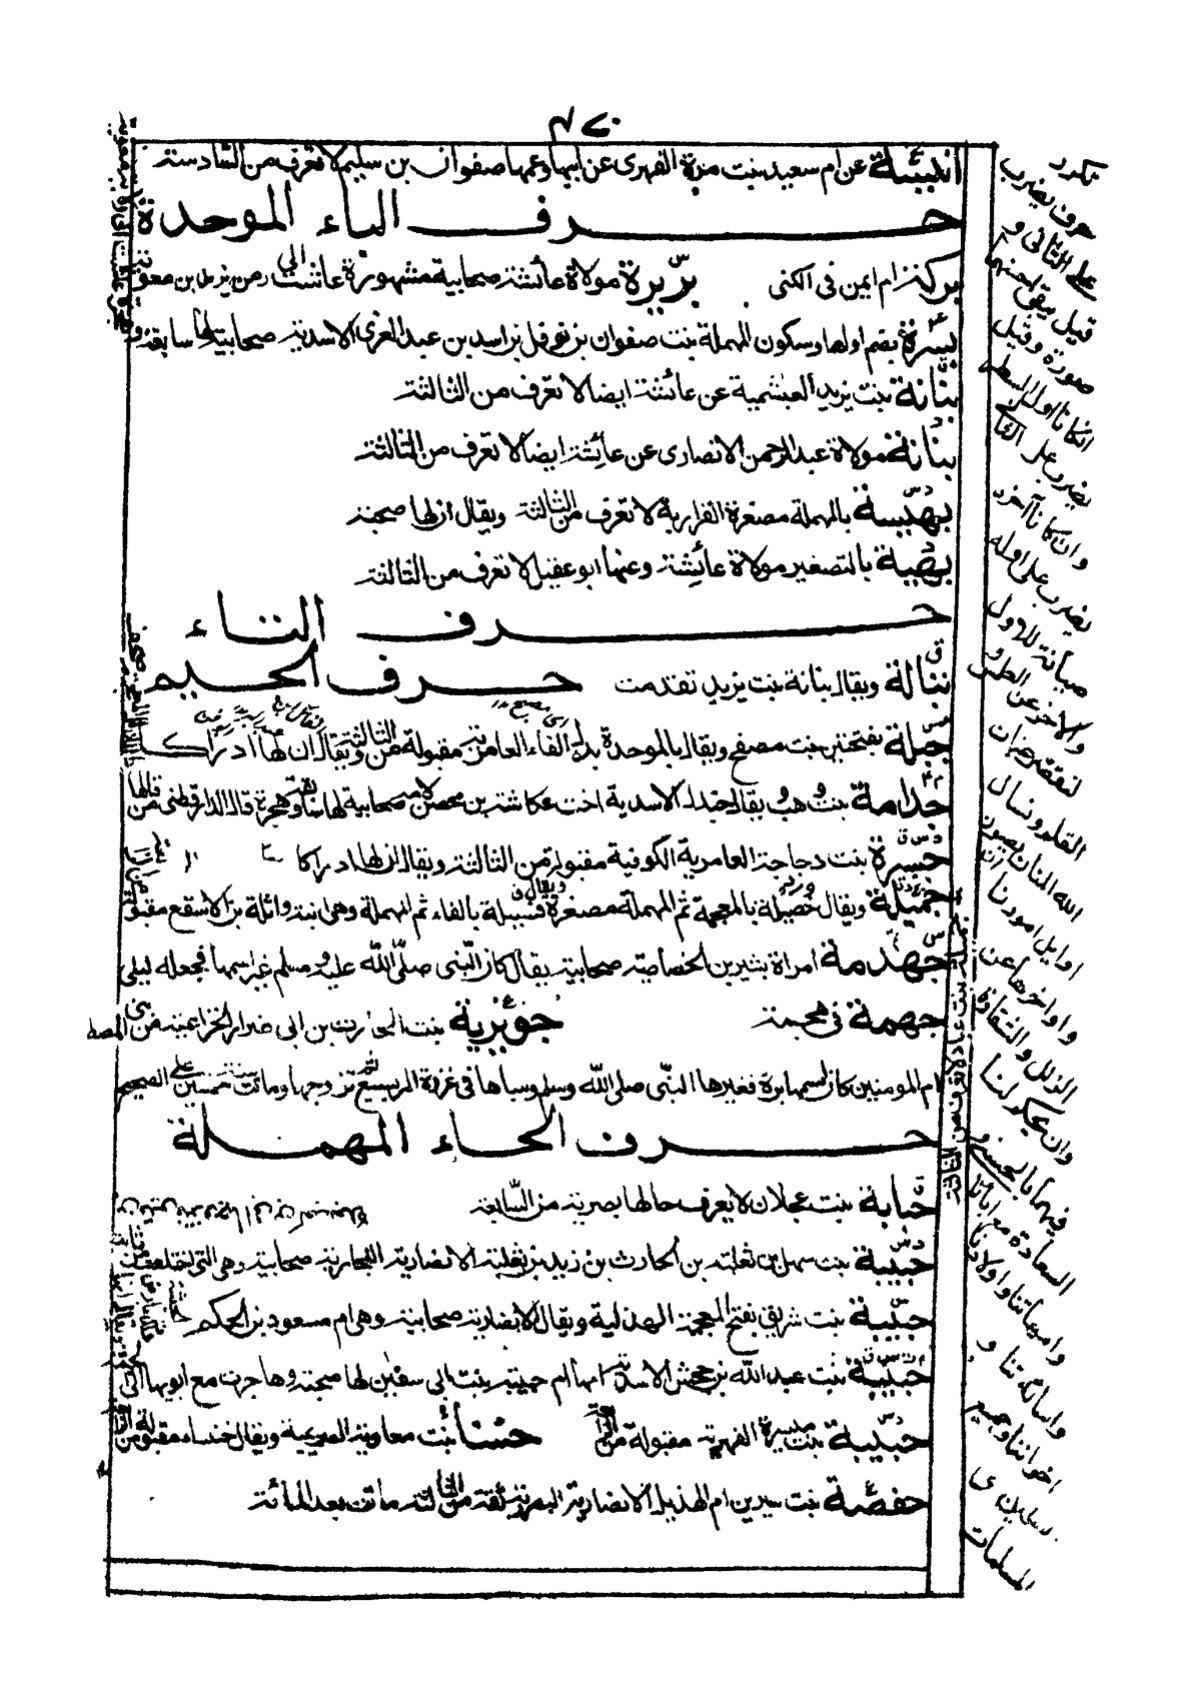 انيسة عن ام سعيد بنت مرة الفهرى عن ابيها وعمها صفوان بن سليم لا تعرف من السادسة
حرف الباء الموحدة
بركة ام ايمن فى الكنى بريرة مولاة عائشة صحابية مشهورة عاشت الى زمن يزيد بن معوية
بسرة بضم اولها وسكون المهملة بنت صفوان بن نوفل بن اسد بن عبد العزى الاسدية صحابية لها سابقة
بنانة بنت يزيد العبشمية عن عائشة ايضا لا تعرف من الثالثة
بنانة مولاة عبد الرحمن الانصارى عن عائشة ايضا لا تعرف من الثالثة
بهيسة بالمهملة مصغرة الفزارية لا تعرف من الثالثة ويقال ان لها صحبة
بهية بالتصغير مولاة عائشة وعنها ابو عقيل لا تعرف من الثالثة
حرف التاء
تبالة ويقال بنانة بنت يزيد تقدمت حرف الجيم
جبلة بفتحتين بنت مصفح ويقال بالموحدة بدل الفاء العامرية مقبولة من الثالثة ويقال ان لها ادراكا
جدامة بنت وهب ويقال جندل الاسدية اخت عكاشة بن محصن لامه صحابية لها سابقة وهجرة قال الدارقطنى من قالها
جسرة بنت دجاجة العامرية الكوفية مقبولة من الثالثة ويقال ان لها ادراكا
جميلة ويقال خصيلة بالمعجمة ثم المهملة مصغرة ويقال فسيلة بالفاء ثم المهملة وهى ابنة واثلة بن الاسقع مقبولة
جهدمة امراة بشير بن الخصاصية صحابية يقال كان النبى صلى الله عليه وسلم غير اسمها فجعله ليلى
جهمة فى جهيمة جويرية بنت الحارث بن ابى ضرار الخزاعية من بنى المصطلق
ام المومنين كان اسمها برة فغيرها النبى صلى الله وسلم وسباها فى غزوة المريسيع ثم تزوجها وماتت سنة خمسين على الصحيح
حرف الحاء المهملة
حبابة بنت عجلان لا يعرف حالها بصرية من السابعة
حبيبة بنت سهل بن ثعلبة بن الحارث بن زيد بن ثعلبة الانصارية النجارية صحابية وهى التى اختلعت من
حبيبة بنت شريق بفتح المعجمة الهذلية ويقال الانصارية صحابية وهى ام مسعود بن الحكم
حبيبة بنت عبيد الله بن جحش الاسدية امها ام حبيبة بنت ابى سفين لها صحبة وهاجرت مع ابويها الى
حبيبة بنت ميسرة الفهرية مقبولة من الرابعة حسناء بنت معاوية الصريمية ويقال خنساء مقبولة من الثالثة
حفصة بنت سيرين ام الهذيل الانصارية البصرية ثقة من الثالثة ماتت بعد المائة
تكرر
حرف يضرب
على الثانى و
قيل يبقى احسنهما
صورة وقيل
ان كانا اول السطر
يضرب على الثانى
وان كانا آخره
يضرب على اوله
صيانة للاول
والآخر عن الطمس
القلم ونسال
الله المنان يصون
اوايل امورنا
واواخرها عن
الزلل
وان يحكم لنا
فيها بالحسنى و
السعادة مع آبائنا
وامهاتنا واولادنا
واساتذتنا و
اخواننا وجميع
المسلمين و
المسلمات